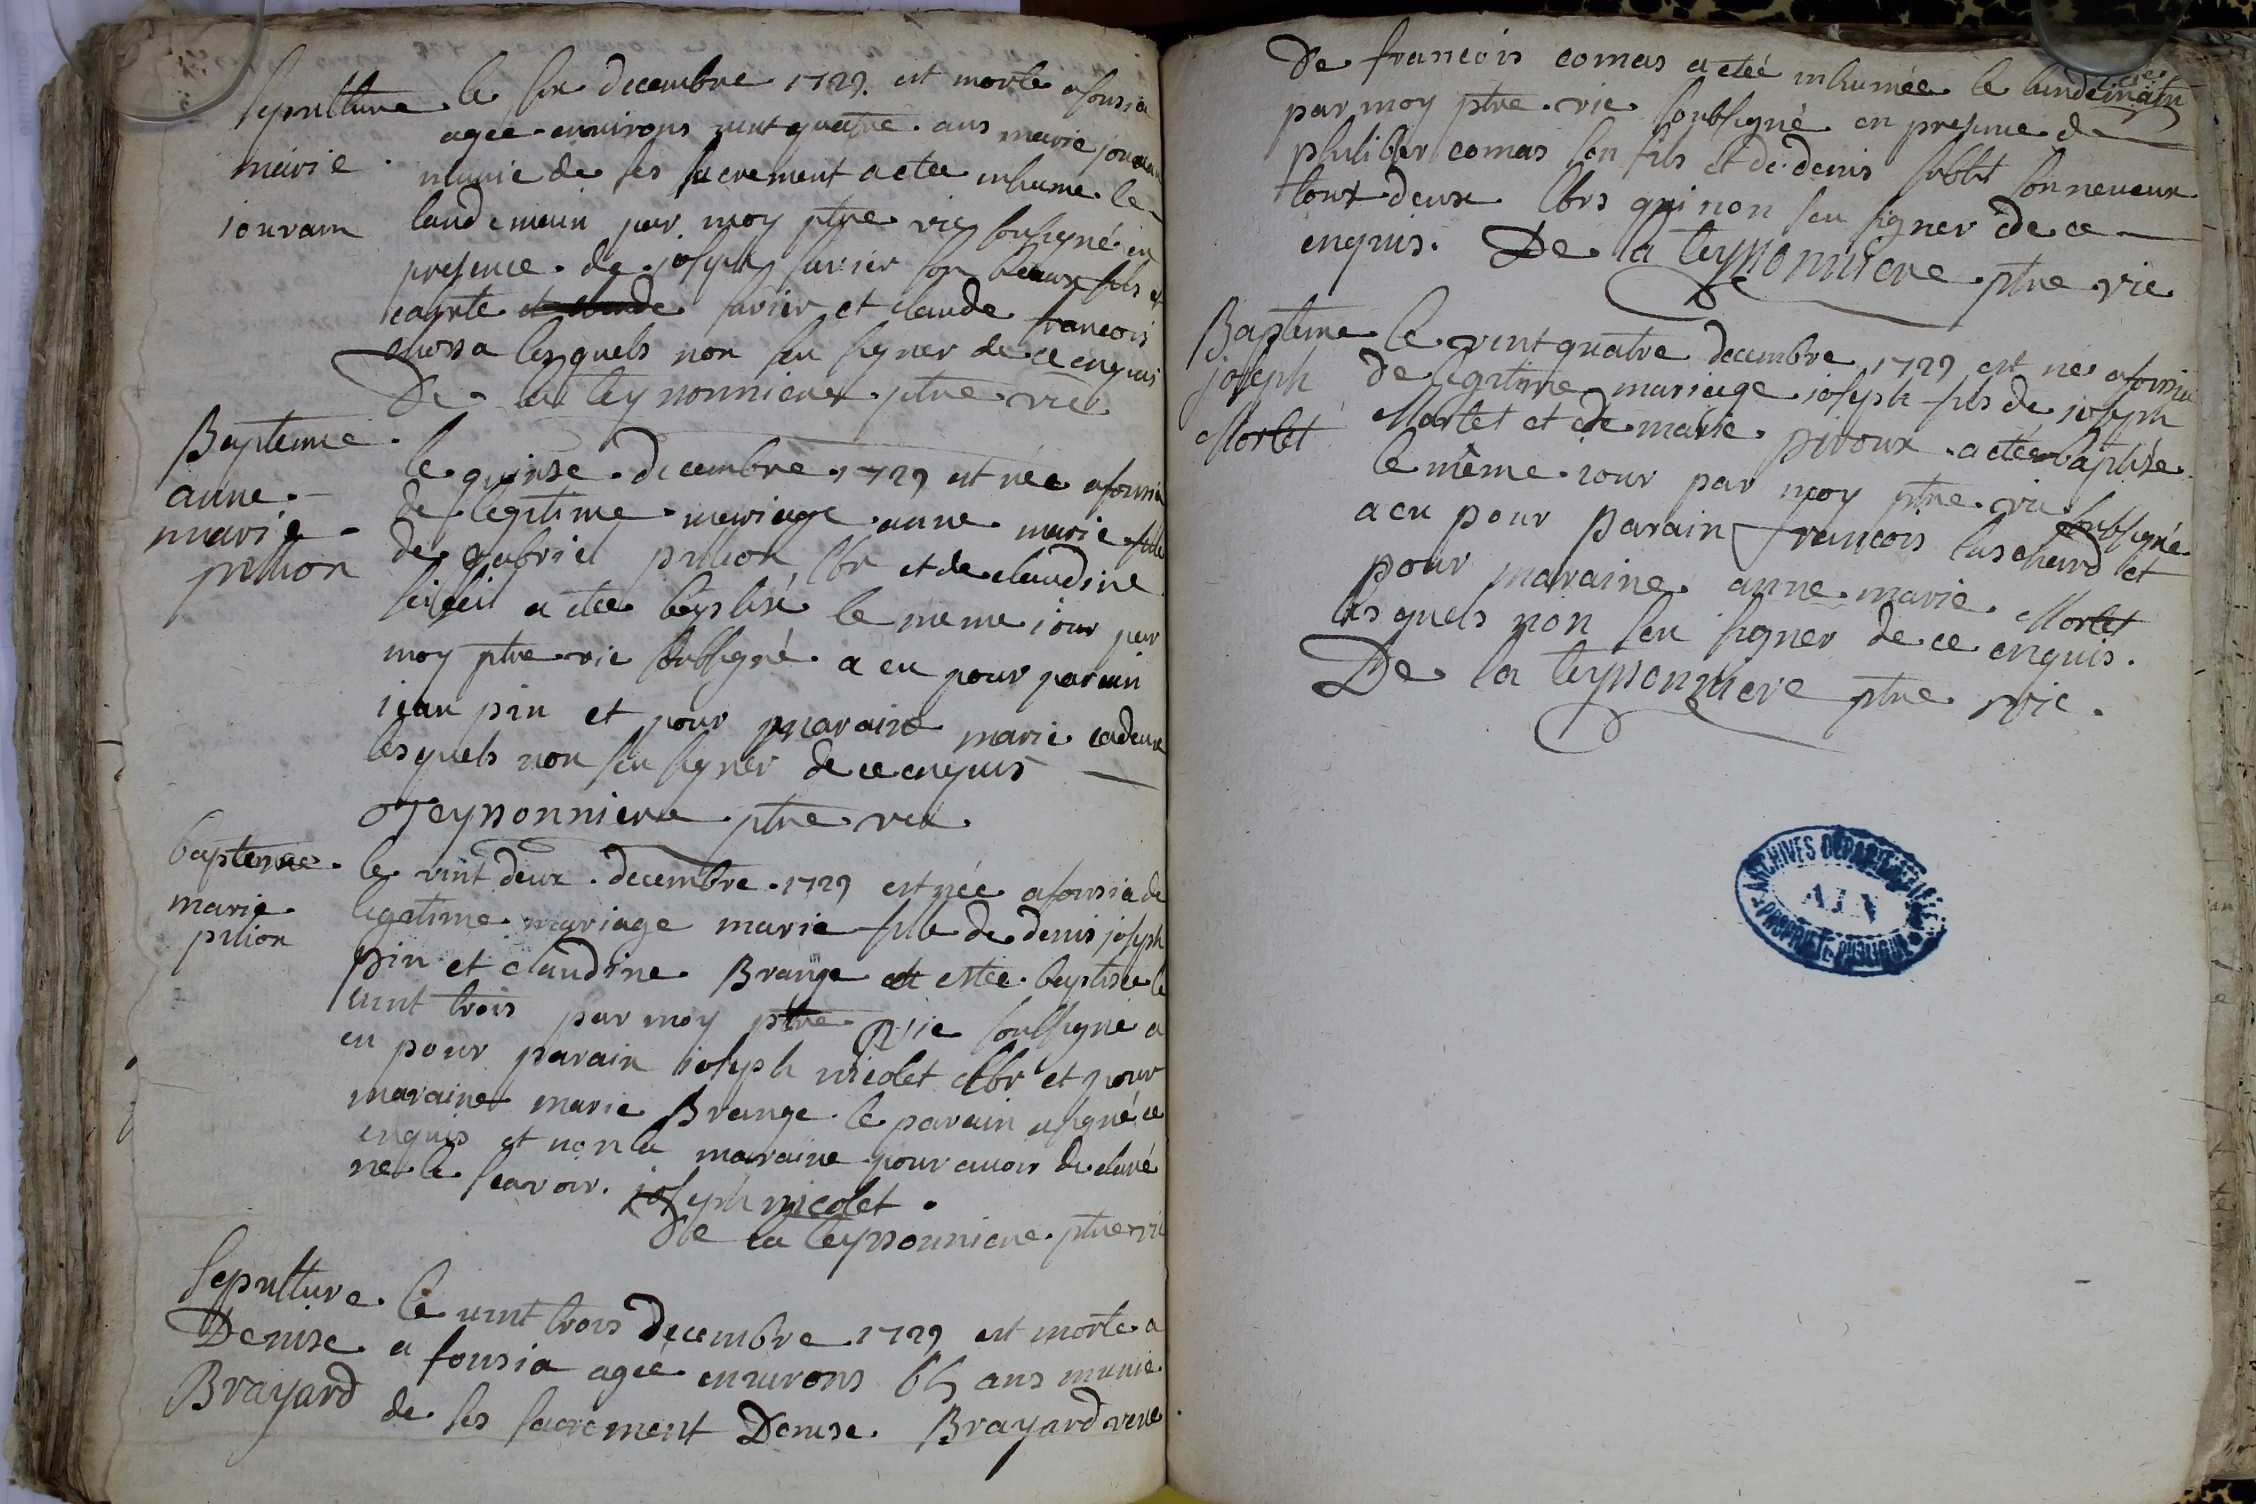 Sepulture
marie
jouvam
le six decembre 1729. est morte a fousia
agee environs vint quatre ans marie
munie de ses sacrement a etee inhume le
landemain par moy ptre vic soussigné en
presence de joseph favier son beaux fils et
et claude favier et claude francois
lesquels non seu signer de ce enquis
De la teyssonniere ptre vic
Bapteme
anne
marie
pillion
le quinse decembre 1729 est née a fousia
de legitime mariage anne marie fille
de gabriel pillion lbr et de claudine
a etee baptisé le meme jour par
moy ptre vic soussigné a eu pour parain
jean pin et pour maraine marie cadeux
lesquels non seu signer de ce enquis
Teyssonniere ptre vic
bapteme
marie
pilion
le vint deux decembre 1729 est née a fousia de
legitime mariage marie fille de denis joseph
pin et claudine Brange et estee baptisee le
vint trois par moy ptre vic soussigné a
eu pour parain joseph nicolet lbr et pour
maraine marie Brange le parain a signé ce
enquis et non la maraine pour avoir declaré
ne le scavoir. joseph nicolet.
De la teyssonniere ptre vic
Sepulture
Denise
Brayard
le vint trois decembre 1729 est morte a
a fousia agée environs 65 ans munie
de ses sacrement Denise Brayard veve
De francois comas a eteé inhumée le landemain
par moy ptre vic soubsigné en presence de
philiber comas son fils et de denis son neveux
tout deux lbrs qui non seu signer de ce
enquis. De la teyssonniere ptre vic
Bapteme
joseph
Morlet
le vint quatre decembre 1729 est né a fousia
de legitime mariage joseph fils de joseph
Morlet et de marie piroux a etée baptisé
le même jour par moy ptre vic soubsigné
a eu pour parain francois luschard et
pour maraine anne marie Morlet
lesquels non seu signer de ce enquis.
De la teyssonniere ptre vic.
ARCHIVES DEPARTEMENTALES
AIN
PROPRIETE PUBLIQUE